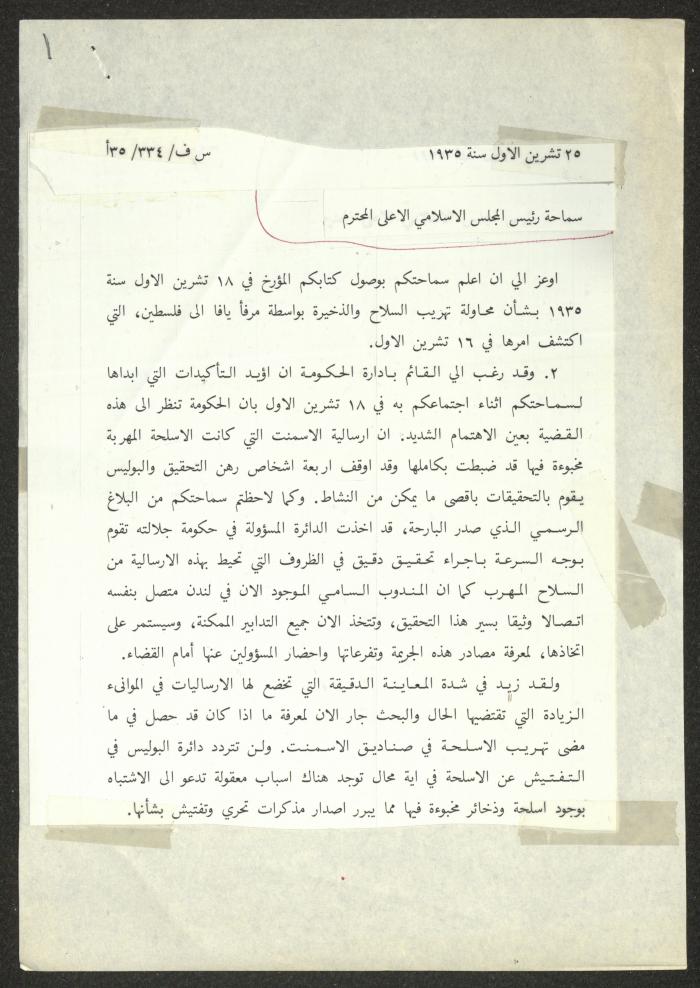 ١
٢٥ تشرين الاول سنة ١٩٣٥ س ف/ ٣٣٤/ ٣٥أ
سماحة رئيس المجلس الاسلامي الاعلى المحترم
اوعز الي ان اعلم سماحتكم بوصول كتابكم المؤرخ في ١٨ تشرين الاول سنة
١٩٣٥ بشأن محاولة تهريب السلاح والذخيرة بواسطة مرفأ يافا الى فلسطين، التي
اكتشف امرها في ١٦ تشرين الاول.
٢. وقد رغب الي القائم بادارة الحكومة ان اؤيد التأكيدات التي ابداها
لسماحتكم اثناء اجتماعكم به في ١٨ تشرين الاول بان الحكومة تنظر الى هذه
القضية بعين الاهتمام الشديد. ان ارسالية الاسمنت التي كانت الاسلحة المهربة
مخبوءة فيها قد ضبطت بكاملها وقد اوقف اربعة اشخاص رهن التحقيق والبوليس
يقوم بالتحقيقات باقصى ما يمكن من النشاط. وكما لاحظتم سماحتكم من البلاغ
الرسمي الذي صدر البارحة، قد اخذت الدائرة المسؤولة في حكومة جلالته تقوم
بوجه السرعة باجراء تحقيق دقيق في الظروف التي تحيط بهذه الارسالية من
السلاح المهرب كما ان المندوب السامي الموجود الان في لندن متصل بنفسه
اتصالا وثيقا بسير هذا التحقيق، وتتخذ الان جميع التدابير الممكنة، وسيستمر على
اتخاذها، لمعرفة مصادر هذه الجريمة وتفرعاتها واحضار المسؤولين عنها أمام القضاء.
ولقد زيد في شدة المعاينة الدقيقة التي تخضع لها الارساليات في الموانىء
الزيادة التي تقتضيها الحال والبحث جار الان لمعرفة ما اذا كان قد حصل في ما
مضى تهريب الاسلحة في صناديق الاسمنت. ولن تتردد دائرة البوليس في
التفتيش عن الاسلحة في اية محال توجد هناك اسباب معقولة تدعو الى الاشتباه
بوجود اسلحة وذخائر مخبوءة فيها مما يبرر اصدار مذكرات تحري وتفتيش بشأنها.